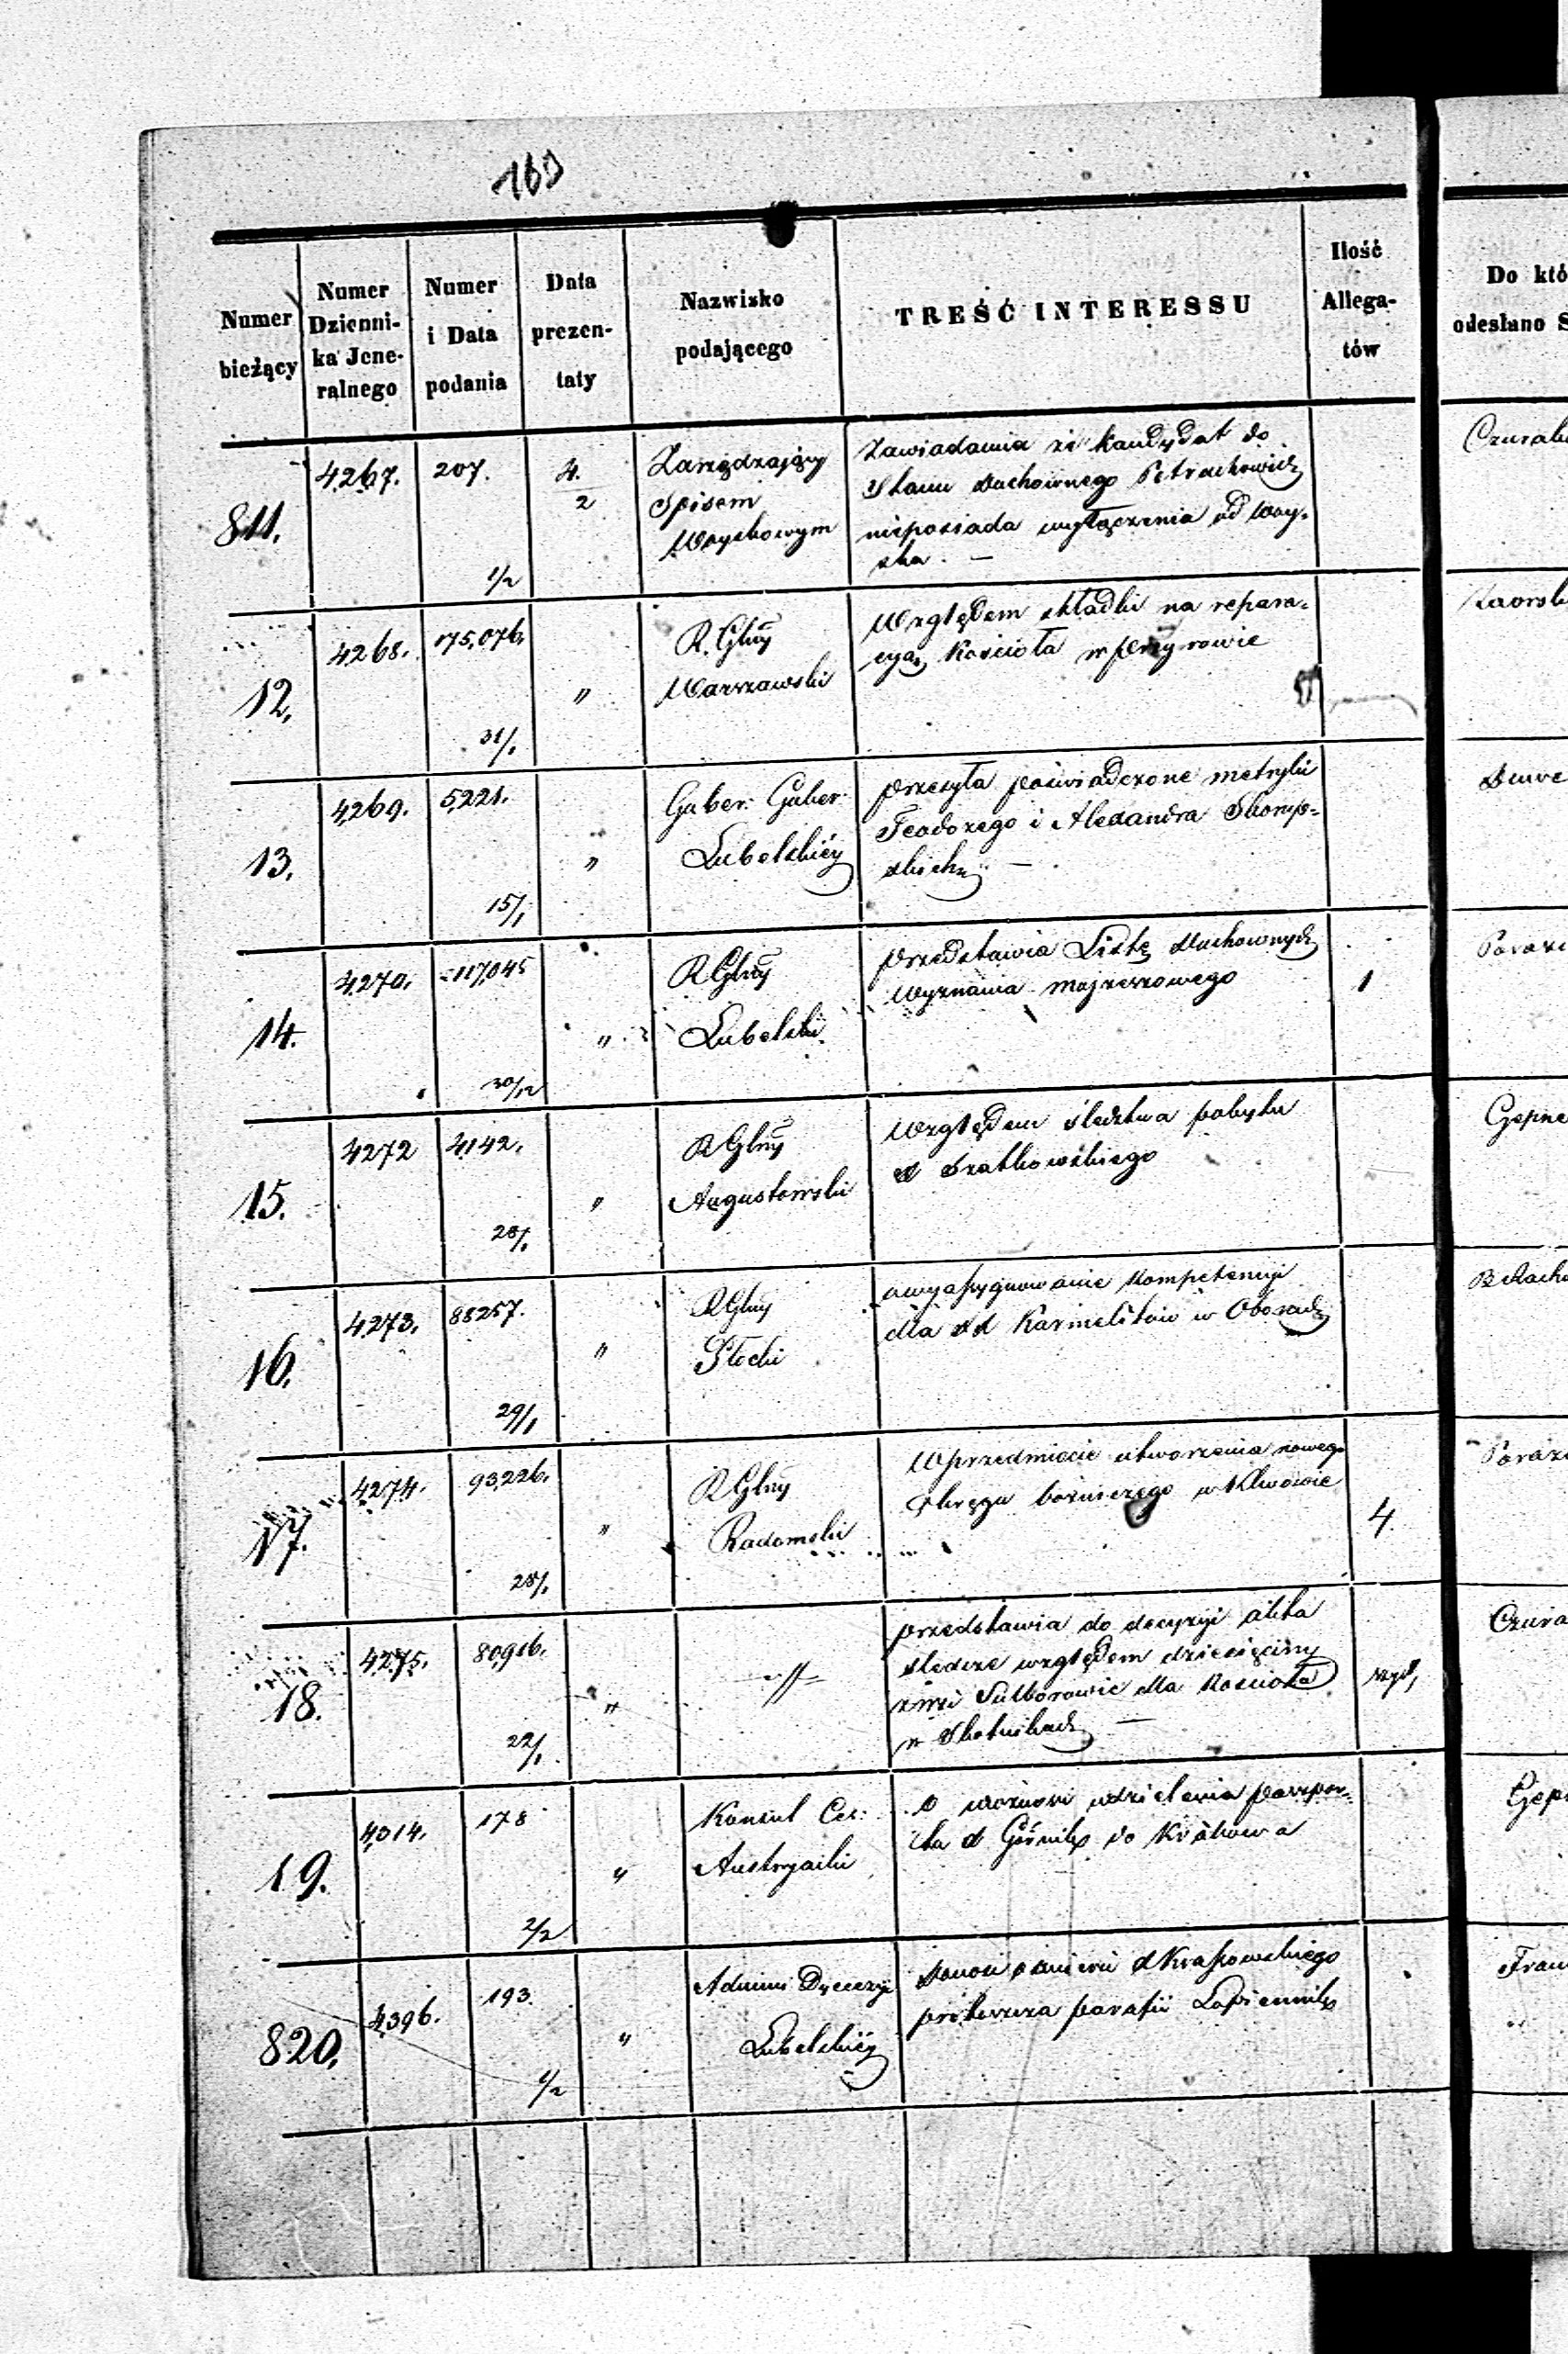 163
Numer bieżący
Numer Dzienni-ka Jene-ralnego
Numer i Data podania
Data prezen-taty
Nazwisko podającego
TREŚĆ INTERESSU
Ilość Allega-tów
Do któ
odesłano S
811. 4267. 207. 1/2 4/2
Zarządzający
Spisem
Woyskowym
Zawiadamia że kandydat do
Stanu duchownego Petrachowicz
nieposiada wyłączenia od Woy-
ska. —
12. 4268. 175,076. 31/1 "
R. Glny
Warszawski
Względem składki na repara-
cyą Kościoła w Przyrowie
13. 4269. 5221. 15/1 "
Guber: Guber:
Lubelskiéy
przesyła poświadczone metryki
Teodorego i Alexandra
14. 4270. 117,045 30/12 "
R Glny
Lubelski
przedstawia Listę duchownych
Wyznania mojzeszowego
1
15. 4272 4142. 28/1 "
R Glny
Augustowski
Względem śledztwa pobytu
16. 4273. 88257. 29/1 "
R Glny
Płocki
kompetencyi
dla Karmelitów w Oborach
B
17. 4274. 93,226. 28/1 "
R Glny
Radomski
W przedmiocie utworzenia nowego
Okręgu bożniczego w Klwowie
4.
18. 4275. 80,916. 22/1 "
przedstawia do decyzyi akta
śledcze względem dziesięciny
z wsi Sulborowic dla Kościoła
w Skotnikach —
19. 4314. 178 2/2 "
Konsul Ces:
Austryacki
O udzielenia paszpor-
tu do Krakowa
820. 4396. 193. 1/2 "
Admini Dyecezyi
Lubelskiéy
Donosi o śmierci
proboszcza parafii